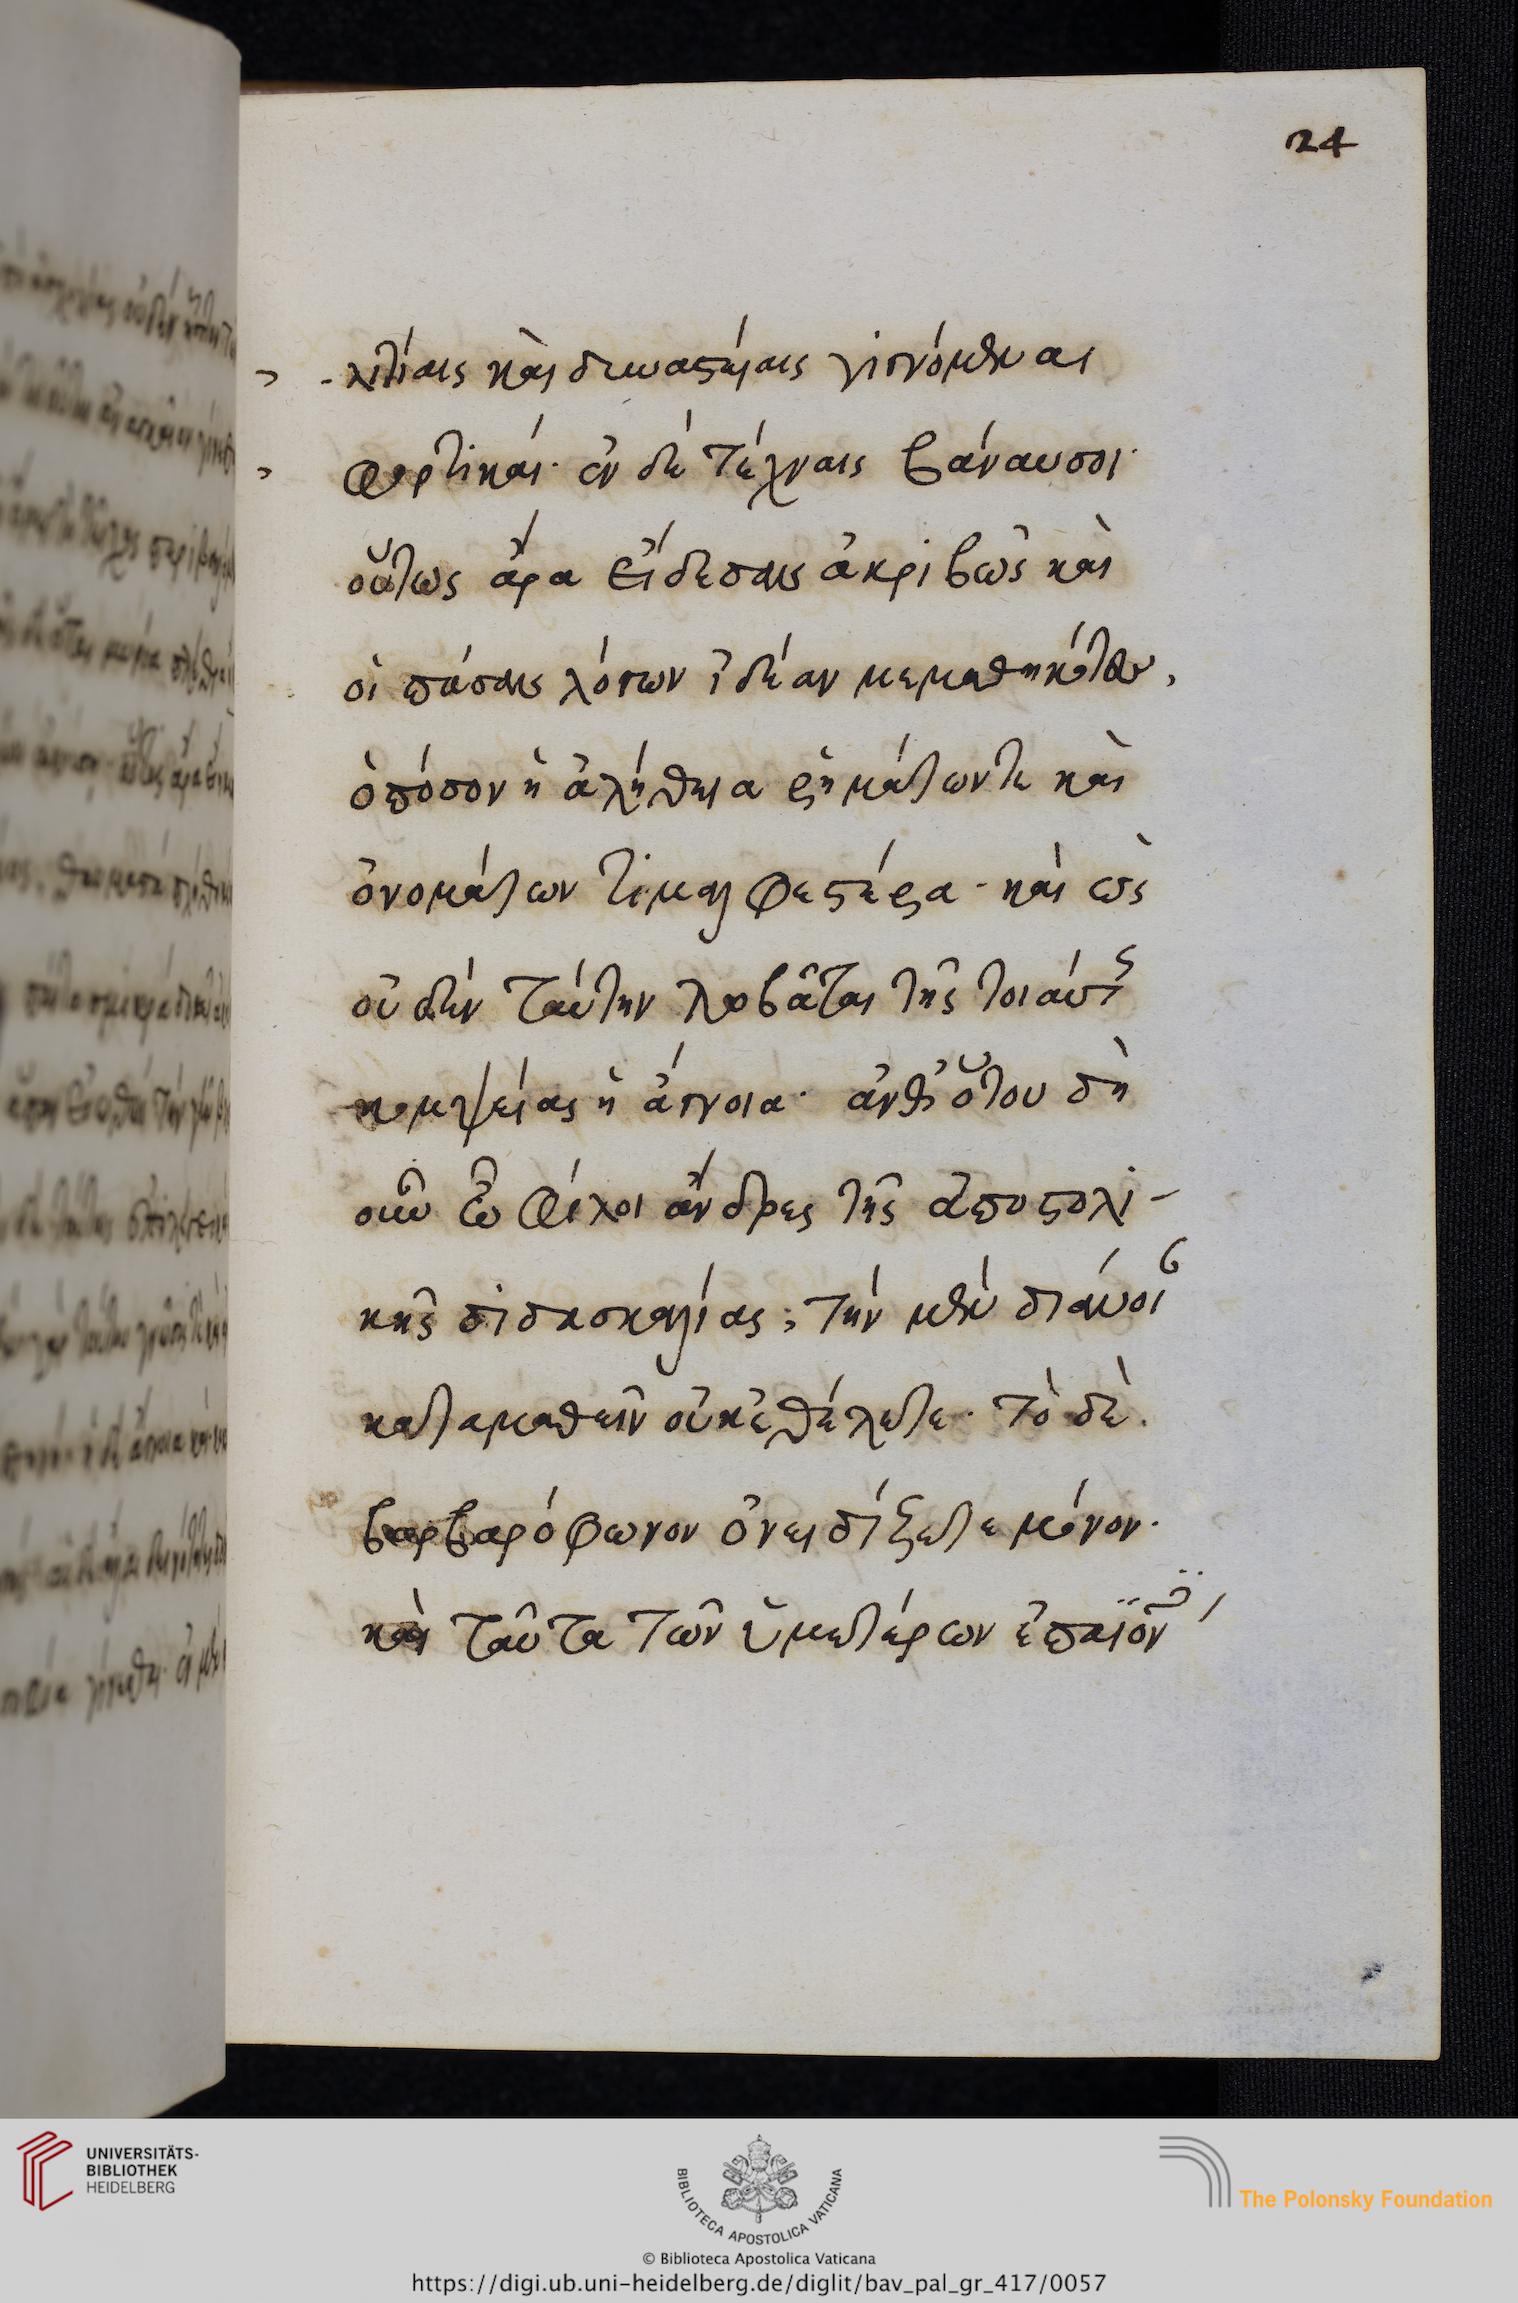 24
-λιτίαις καὶ δυναστείαις γιγνόμεναι
φορτικαί· ἐν δὲ τέχναις βάναυσοι·
οὕτως ἄρα εἴδεσαν ἀκριβῶς καὶ
οἱ πᾶσαν λόγων ἰδέαν μεμαθηκότες,
ὁπόσον ἡ ἀλήθεια ῥημάτων τε καὶ
ὀνομάτων τιμαλφεστέρα· καὶ ὡς
οὐδὲν ταύτην λωβᾶται τῆς τοιαύτης
κομψείας ἡ ἄγνοια· ἀνθ' ὅτου δὴ
οὖν ὦ φίλοι ἄνδρες τῆς ἀποστολι-
κῆς διδασκαλίας; τὴν μὲν διάνοιαν
καταμαθεῖν οὐκ ἐθέλετε· τὸ δὲ
βαρβαρόφωνον ὀνειδίζετε μόνον·
καὶ ταῦτα τῶν ὑμετέρων ἐπαΐον
UNIVERSITÄTS-
BIBLIOTHEK
HEIDELBERG
BIBLIOTECA APOSTOLICA VATICANA
The Polonsky Foundation
© Biblioteca Apostolica Vaticana
https://digi.ub.uni-heidelberg.de/diglit/bav_pal_gr_417/0057